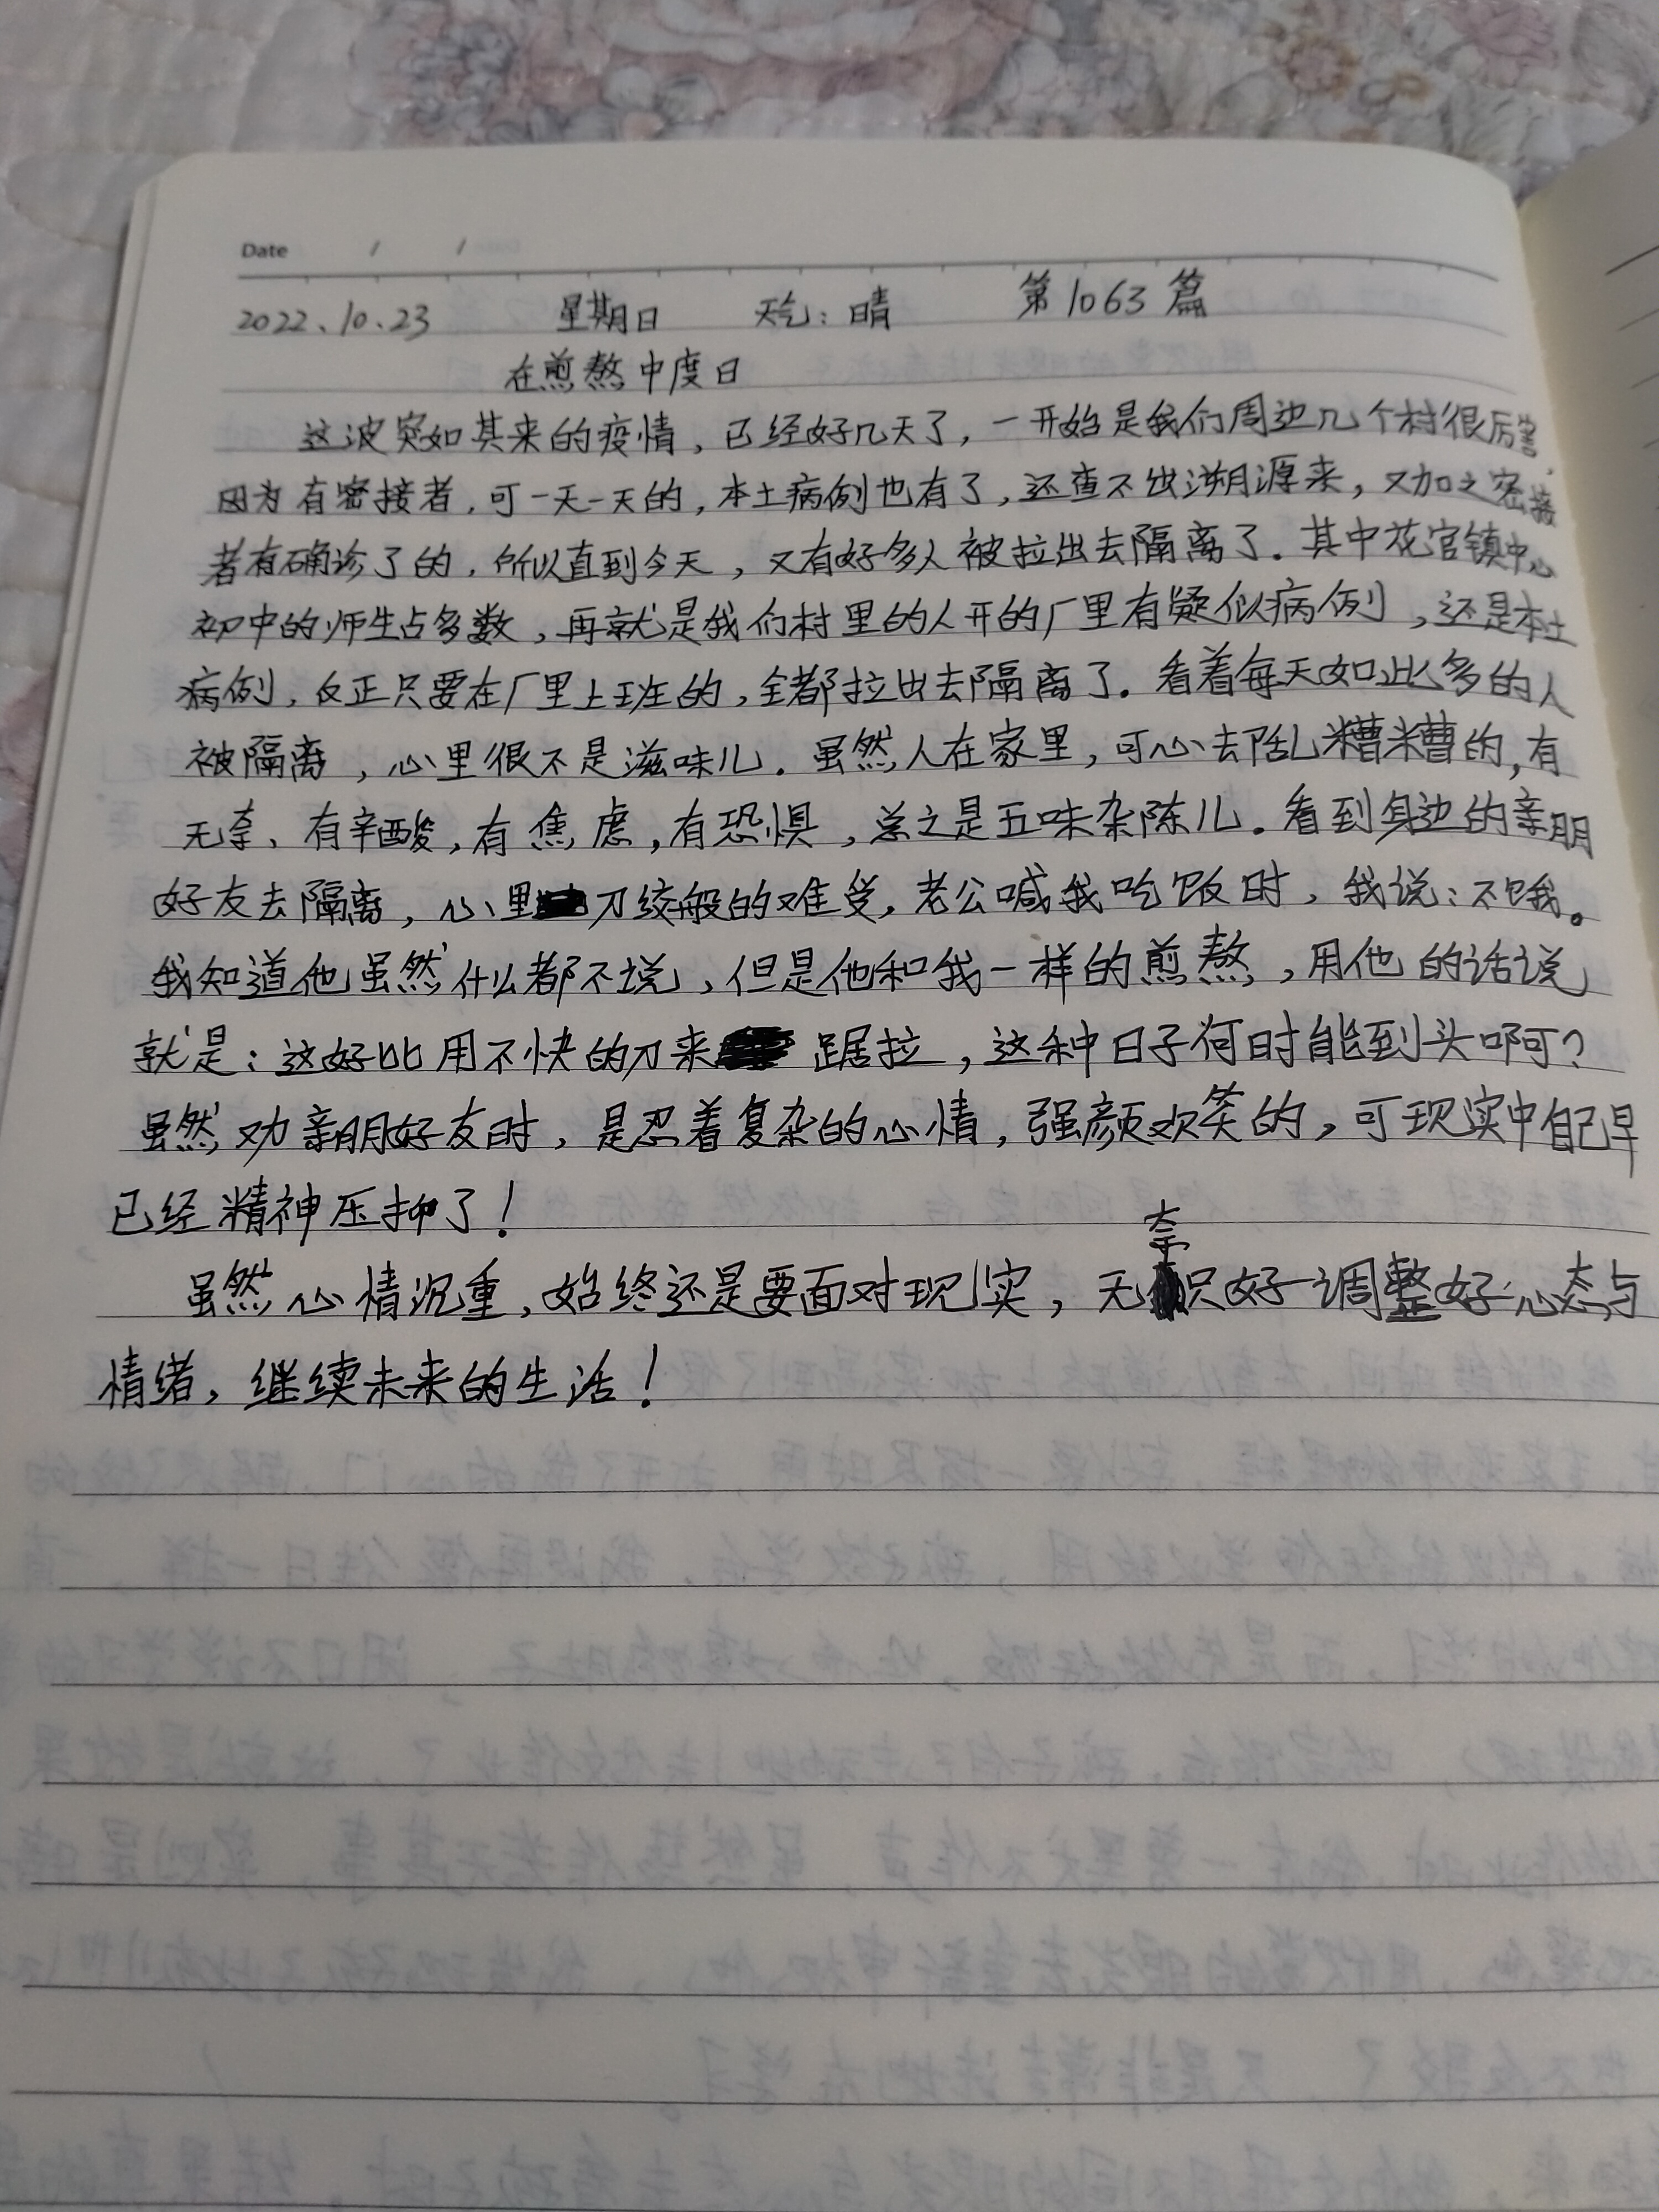 Date / /
2022.10.23 星期日 天气:晴 第1063篇
在煎熬中度日
这波突如其来的疫情,已经好几天了,一开始是我们周边几个村很厉害,
因为有密接者,可一天一天的,本土病例也有了,还查不出溯源来,又加之密接
者有确诊了的,所以直到今天,又有好多人被拉出去隔离了。其中花官镇中心
初中的师生占多数,再就是我们村里的人开的厂里有疑似病例,还是本土
病例,反正只要在厂里上班的,全都拉出去隔离了。看着每天如此多的人
被隔离,心里很不是滋味儿。虽然人在家里,可心去乱糟糟的,有
无奈、有辛酸,有焦虑,有恐惧,总之是五味杂陈儿。看到身边的亲朋
好友去隔离,心里刀绞般的难受,老公喊我吃饭时,我说:不饿。
我知道他虽然什么都不说,但是他和我一样的煎熬,用他的话说
就是:这好比用不快的刀来踞拉,这种日子何时能到头啊?
虽然劝亲朋好友时,是忍着复杂的心情,强颜欢笑的,可现实中自己早
已经精神压抑了!
虽然心情沉重,始终还是要面对现实,无奈只好调整好心态与
情绪,继续未来的生活!